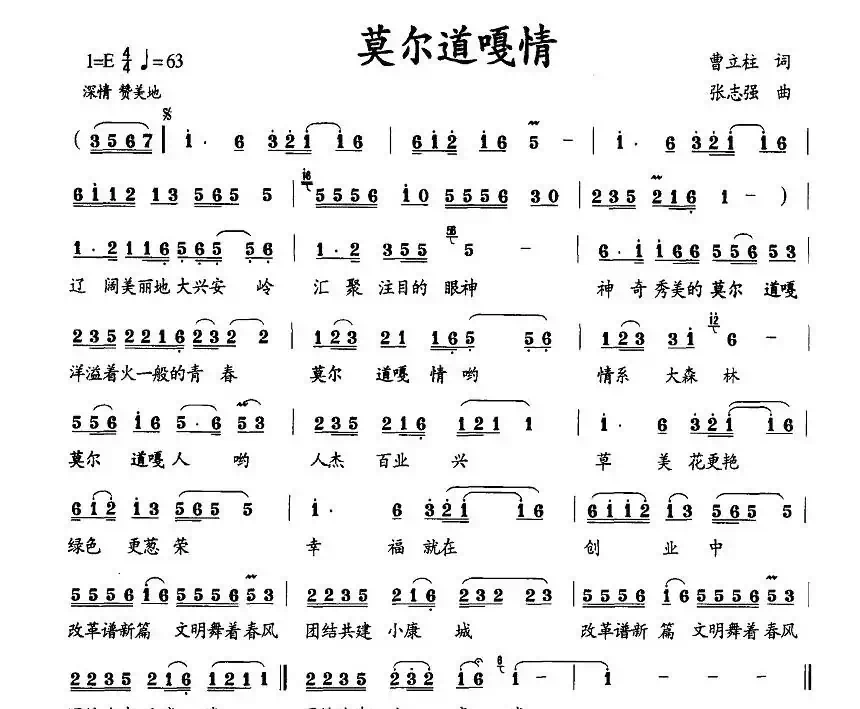 莫尔道嘎情
1=E 4/4 ♩=63
曹立柱 词
深情 赞美地
张志强 曲
(3567 ‖ i· 6 32i i6 | 6i2 i6 5 - | i· 6 32i i6 |
6i12 13 565 5 | 5556 i0 5556 30 | 235 216 1 - ) |
1·2 116 565 56 | 1·2 355 5 - | 6·i i66 556 53 |
辽 阔美丽地 大兴安 岭 汇聚 注目的 眼神 神奇秀美的 莫尔 道嘎
235 2216 232 2 | 123 21 165 56 | 123 3i 6 - |
洋溢着火一般的青春 莫尔 道嘎 情哟 情系 大森林
556 i6 5·6 53 | 235 216 121 1 | i· 6 32i i6 |
莫尔 道嘎人 哟 人杰 百业 兴 草 美 花更艳
6i2 i3 565 5 | i· 6 32i i6 | 6ii2 i3 565 5 |
绿色 更葱荣 幸 福就在 创 业中
5556 i6 5556 53 | 2235 216 232 23 | 5556 i6 5556 53 |
改革谱新篇 文明舞着春风 团结共建 小康 城 改革谱新 篇 文明舞着春风
2235 216 1211 ‖ 2235 216 232 i6 | i - i - | i - - - ‖